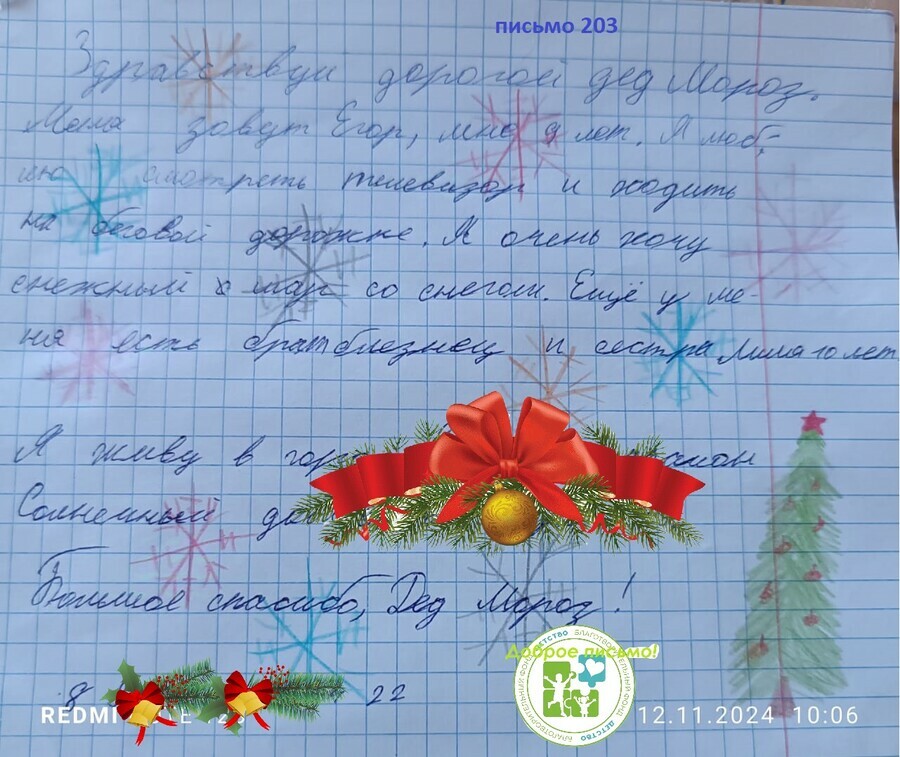 письмо 203
Здравствуй дорогой дед Мороз.
Меня зовут Егор, мне 9 лет. Я люб-
лю смотреть телевизор и ходить
на беговой дорожке. Я очень хочу
снежный шар со снегом. Ещё у ме-
ня есть брат близнец и сестра Лима 10 лет
Я живу в
Солнечный
Большое спасибо, Дед Мороз!
Доброе письмо!
БЛАГОТВОРИТЕЛЬНЫЙ ФОНД ДЕТСТВО
8 22
REDMI 12.11.2024 10:06